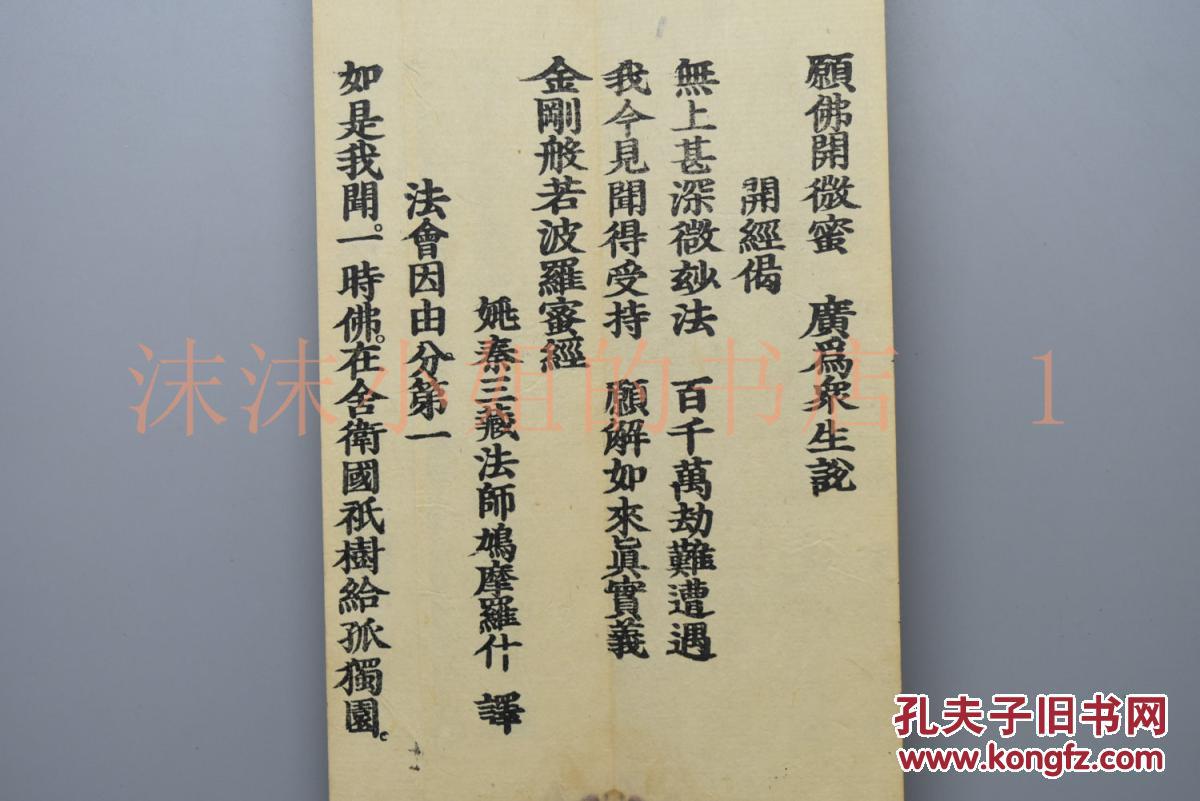 願佛開微蜜　廣爲衆生說
開經偈
無上甚深微玅法　百千萬劫難遭遇
我今見聞得受持　願解如來眞實義
金剛般若波羅蜜經
姚秦三藏法師鳩摩羅什　譯
法會因由分。第一
如是我聞。一時佛。在舍衛國祇樹給孤獨園。
沫沫小姐的书店　1
孔夫子旧书网
www.kongfz.com